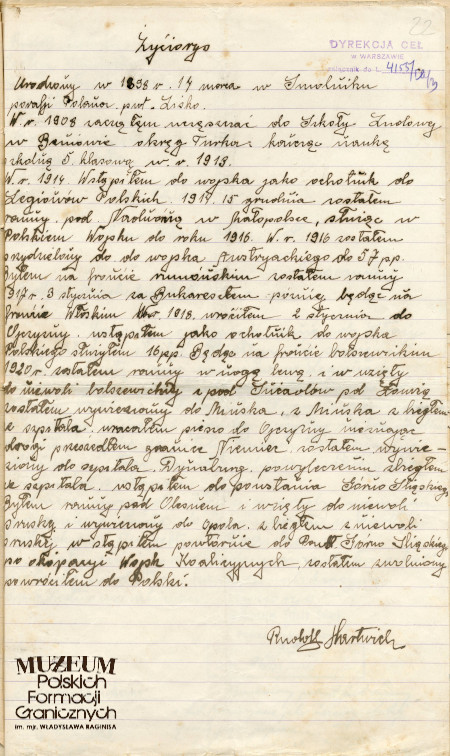 22
Życiorys
DYREKCJA CEŁ
W WARSZAWIE
Urodzony w 1898 r. 14 marca w Smolniku
parafji pow. Lisko.
W. r. 1908 zacząłem uczęszczać do Szkoły Ludowej
w okręg Turka kończąc naukę
szkolną 5. klasową w. r. 1913.
W. r. 1914 Wstąpiłem do wojska jako ochotnik do
Legionów Polskich. 1914. 15 grudnia zostałem
ranny. pod. w Małopolsce, służąc w
Polskiem Wojsku do roku 1916. W. r. 1916 zostałem
przydzielony do do wojska Austryackiego do 57 pp.
Byłem na froncie rumuńskim zostałem ranny
917 r. 3 stycznia za Bukaresztem później będąc na
froncie Włoskim 1918. wróciłem 2 stycznia do
Ojczyzny wstąpiłem jako ochotnik do wojska
Polskiego służyłem 16 pp. Będąc na froncie bolszewickim
1920 r. zostałem ranny w nogę lewą i w zięty
do niewoli bolszewickiej z pod
zostałem wywieziony do Mińska, z Mińska z biegłem
ze szpitala. wracałem pieszo do Ojczyzny nieznając
drogi przeszedłem granicę Niemiec. zostałem wywie-
ziony do szpitala. Dynaburg. po wyleczeniu zbiegłem
ze szpitala. wstąpiłem do powstania Górno Śląskiego
Byłem ranny pod Olesnem i wzięty do niewoli
pruskiej i wywieziony do Opola. z biegłem z niewoli
pruskiej w stąpiłem powtórnie do Górno Śląskiego
po okupacji Wojsk Koalicyjnych, zostałem zwolniony
powróciłem do Polski.
Rudolf Hartwich
MUZEUM
Polskich
Formacji
Granicznych
im. mjr. WŁADYSŁAWA RAGINISA